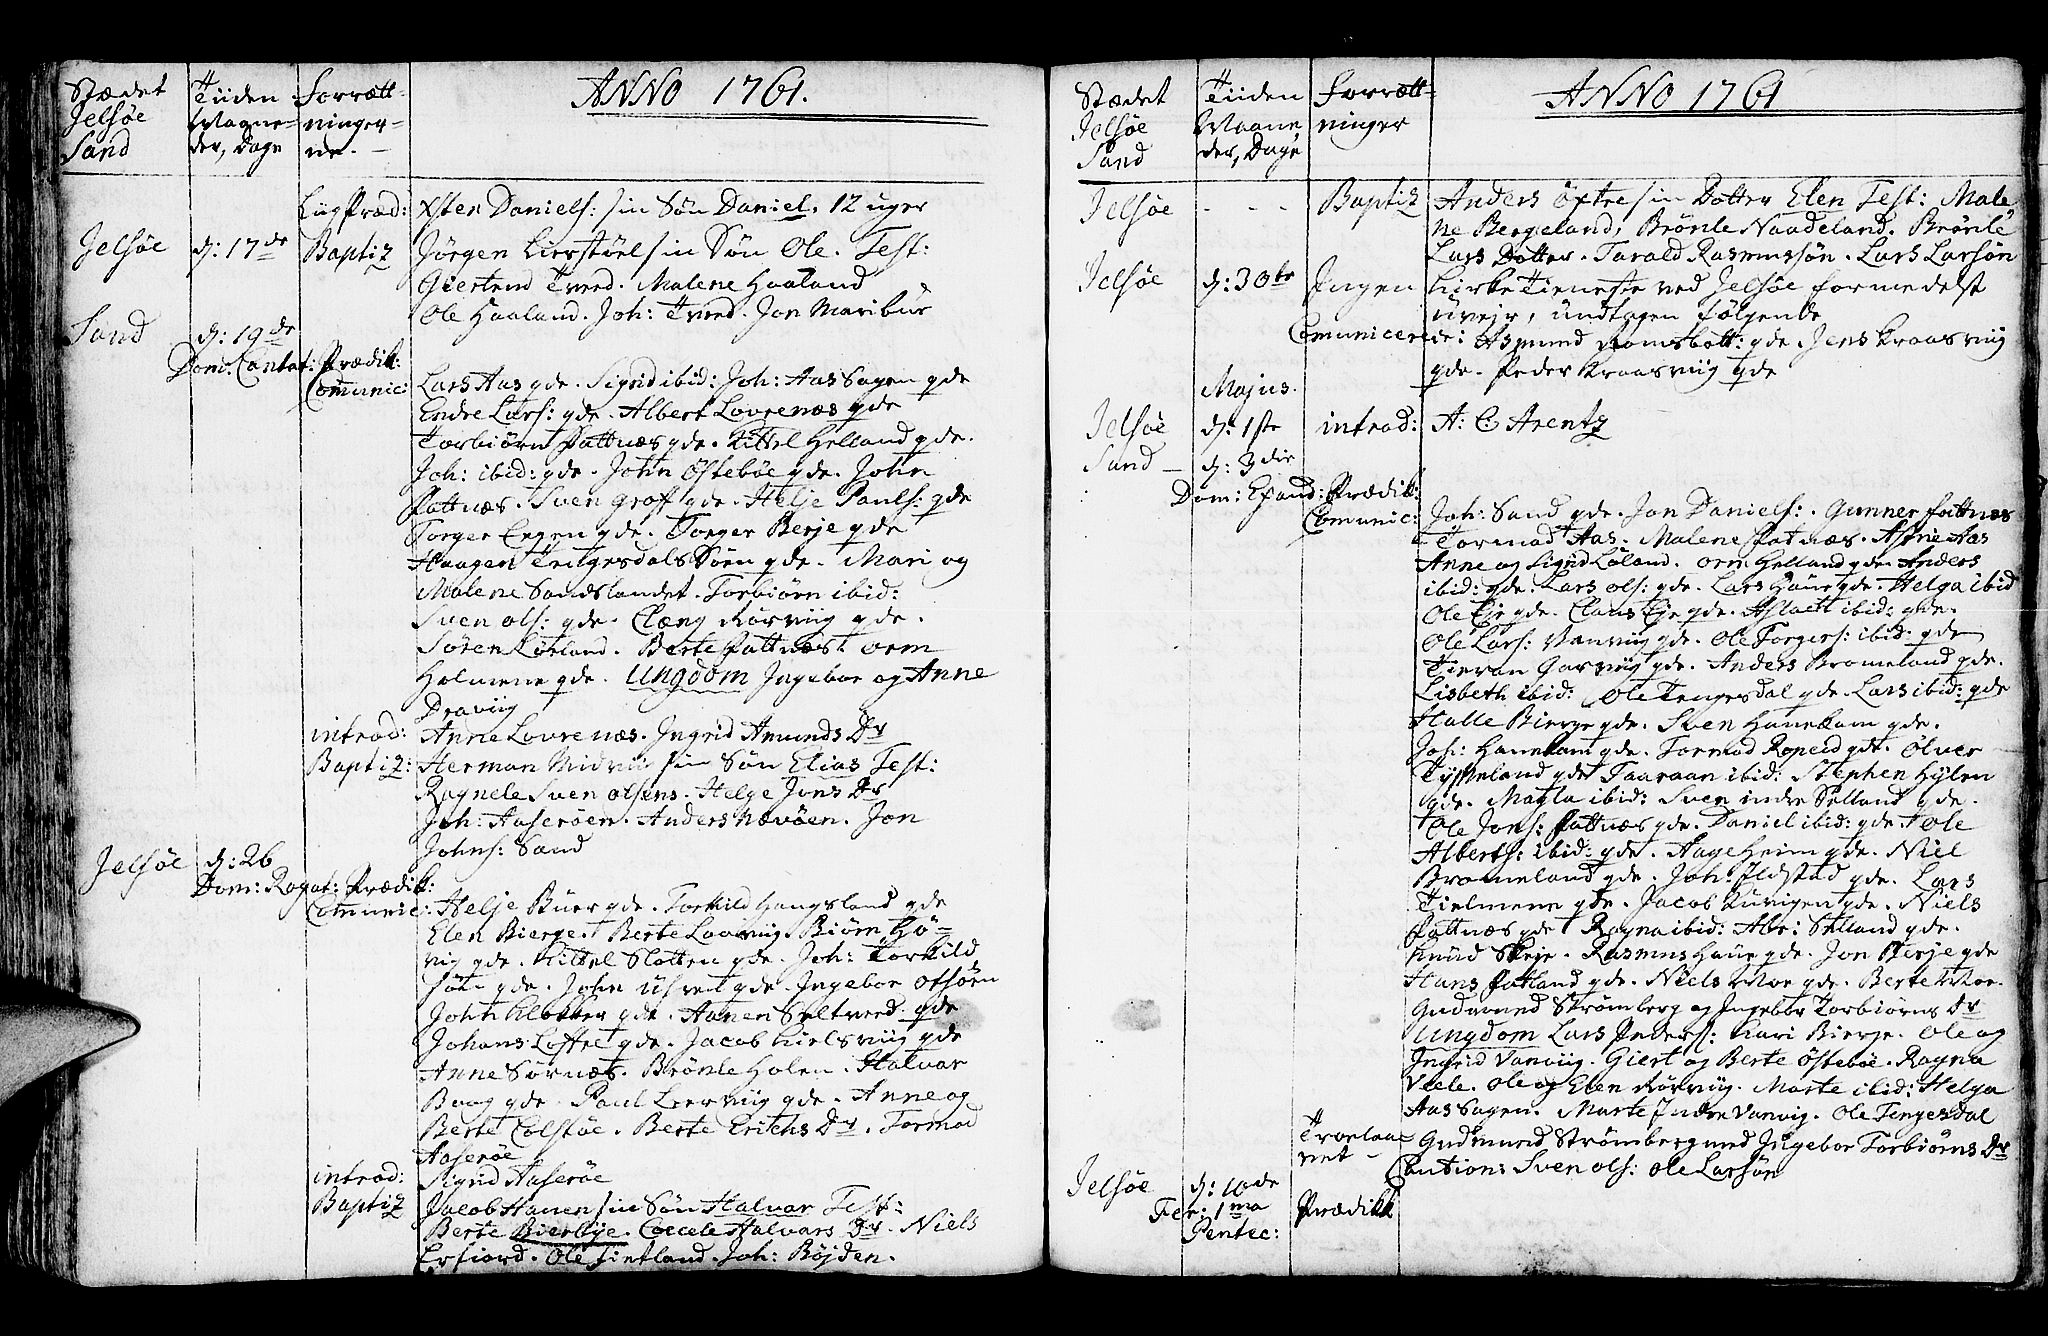 Stædet
Jelsøe
Sand
Tiiden
Maane-
der, Dage
Forrætt-
ninger-
ne.
ANNO 1761.
Liigpræd: Xsten Daniels: sin Søn Daniel. 12 uger
Jelsøe d: 17de Baptiz Jørgen Lierstøel sin Søn Ole. Test:
Giertrud Tveed. Malene Haaland
Ole Haaland. Joh: Tveed. Jon Maribue
Sand d: 19de
Dom: Cantat: Prædik:
Comunic: Lars Aas gde. Sigrid ibid: Joh: Aas Sagen gde
Endre Lars: gde. Albert Lovrenæs gde
Torbiørn Fattnæs gde. Kittel Helland gde.
Joh: ibid: gde. John Østebøe gde. John
Fattnæs. Sven Groff gde. Helje Pauls: gde
Torger gde. Torger Berje gde
Haagen Tengesdals Søen gde. Mari og
Malene Sandslandet. Torbiørn ibid:
Sven ols: gde. Clæng Rørviig gde.
Søren Løeland. Berte Fattnæs orm
Holmene gde. Ungdom Ingebor og Anne
Draviig
introd: Anne Lovrenæs. Ingrid Amunds Dr
Baptiz: Herman Midviig sin Søn Elias Test:
Ragnele Sven olsens. Helge Jons Dr
Joh: Aaserøen. Anders Nævøen. Jon
Johns: Sand
Jelsøe d: 26
Dom: Rogat: Prædik:
Comunic: Helje Büer gde. Torkild Haugsland gde
Elen Bierge. Berte Laaviig. Biørn Hø-
viig gde. Kittel Slotten gde. Joh: Torkild
søn gde. John gde. Ingebor olsøen
John Klokker gde. Aanen Seltveed gde
Johans Lofte gde. Jacob Hielsviig gde
Anne Sørnæs. Brønle Holen. Halvar
Baag gde. Paul Leerviig gde. Anne og
Berte Colstøe. Berte Erichs Dr. Tormod
Aaserøe
introd: Sigrid Aaserøe
Baptiz Jacob Hanen sin Søn Halvar Test:
Berte Bierkye. Coecele Halvars Dr. Niels
Erfiord. Ole Fietland. Joh: Bøjden.
Stædet
Jelsøe
Sand
Tiiden
Maane
der, Dage
Forrætt-
ninger
ANNO 1761
Jelsøe - - - Baptiz Anders Øxtre sin Dotter Elen Test: Male
ne Bergeland, Brønle Naadeland. Brønle
Lars Dotter. Tarald Rasmussøn. Lars Larsøn
Jelsøe d: 30te Ingen KirkeTieneste ved Jelsøe formedelst
uvejr, undtagen følgende
Comunicere: Asmund Ramsbott: gde. Jens Kraasviig
gde. Peder Kraasviig gde
Majus.
Jelsøe d: 1ste introd: A: C: Arentz
Sand - d: 3die
Dom: Exaud: Prædik:
Comunic: Joh: Sand gde. Jon Daniels: . Gunner Fattnæs
Tormod Aas. Malene Fatnæs. Astrie Aas
Anne og Sigrid Løland. orm Helland gde. Anders
ibid: gde. Lars ols: gde. Lars Haüe gde. Helga ibid
Ole Eje gde. Claus Eje gde. Aslaett ibid: gde.
Ole Lars: Vanviig gde. Ole Torgers: ibid: gde
Tieran Garviig gde. Anders Bromeland gde.
Lisbeth ibid: Ole Tengesdal gde. Lars ibid: gde
Halle Bierge gde. Sven Hanekam gde.
Joh: Hanekam gde. Tormod Ropeid gde. Ølver
Tysseland gde Taaraan ibid: Stephen Hylen
gde. Magla ibid: Sven indre Selland gde.
Ole Jons: Fattnæs gde. Daniel ibid: gde. Ole
Alberts: ibid: gde. Aage Heim gde. Niel
Bromeland gde. Joh: Ilstad gde. Lars
Tielmene gde. Jacob Kuvigen gde. Niels
Fattnæs gde Ragna ibid: Abr: Selland gde.
Knud Skeje. Rasmus Haüe gde. Jon Berje gde
Hans Fatland gde. Niels Moe gde. Berte Moe.
Gudmund Strømberg og Ingebor Torbiørns Dr
Ungdom Lars Peders: Kari Bierge. Ole og
Ingrid Vanviig. Giert og Berte Østebøe. Ragna
Vele. Ole og Elen Rørviig. Marte ibid: Helga
Aas Sagen. Marte Indre Vanvig. Ole Tengesdal
Troelaa-
vet - Gudmund Strømberg med Ingebor Torbiørns Dr
Caution: Sven ols: Ole Larsøn
Jelsøe d: 10de
Fer: 1ma Prædikk
Pentec: